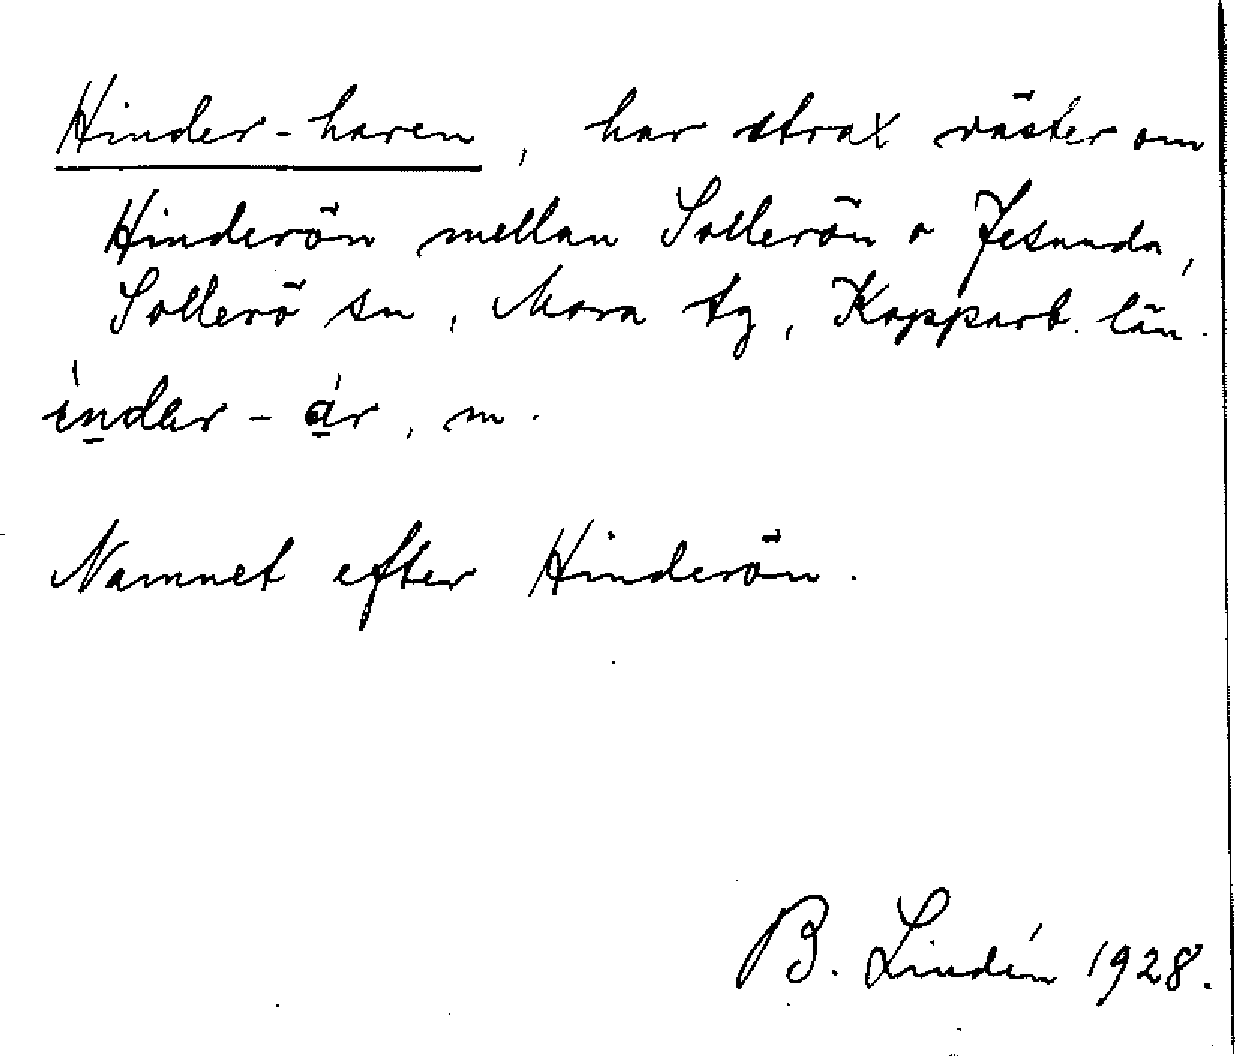 Hinder-haren, har strax väster om
Hinderön mellan Sollerön o Jesunda,
Sollerö sn, Mora tg, Kopparb. län.
ı́ndar - ár, m.
Namnet efter Hinderön.
B. Lindén 1928.